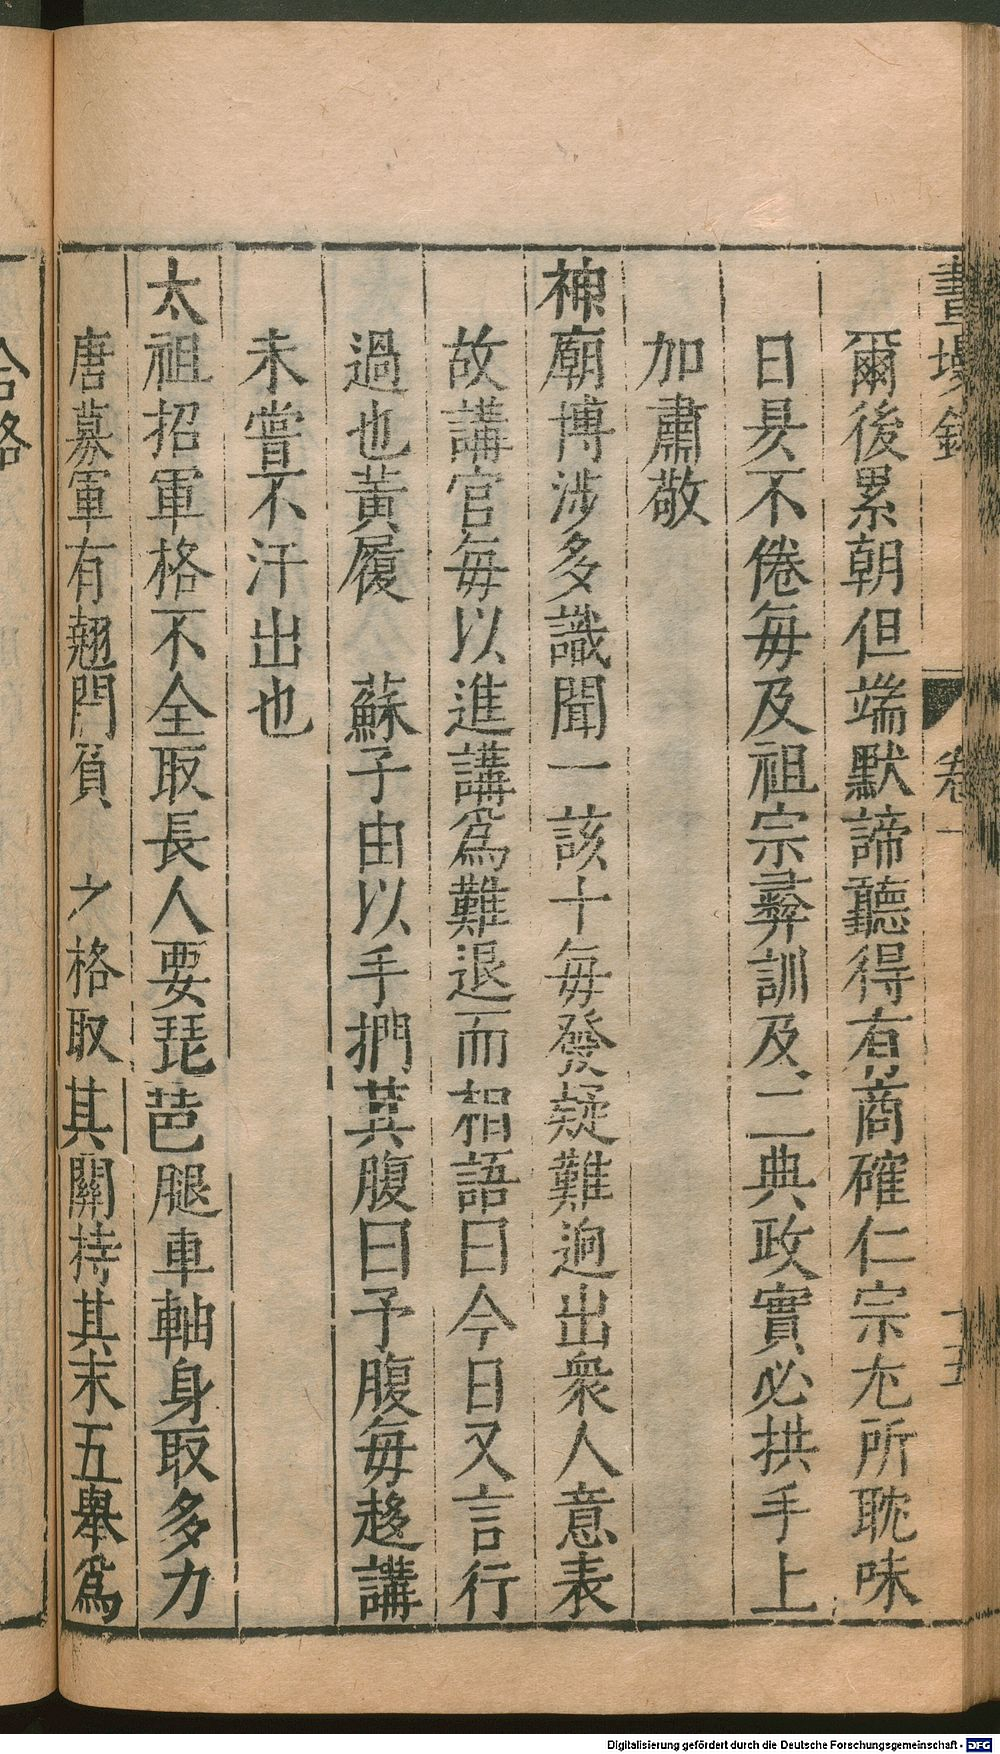 畫墁錄 卷一 十五
爾後累朝但端默諦聽得有商確仁宗尢所耽味
日昃不倦每及祖宗彛訓及二典政實必拱手上
加肅敬
神廟博涉多識聞一該十每發疑難逈出衆人意表
故講官每以進講爲難退而相語曰今日又言行
過也黃履 蘇子由以手捫其腹曰予腹每趍講
未嘗不汗出也
太祖招軍格不全取長人要琵琶腿車軸身取多力
唐募軍有翹門負 之格取其關持其末五舉爲
合格
Digitalisierung gefördert durch die Deutsche Forschungsgemeinschaft - DFG